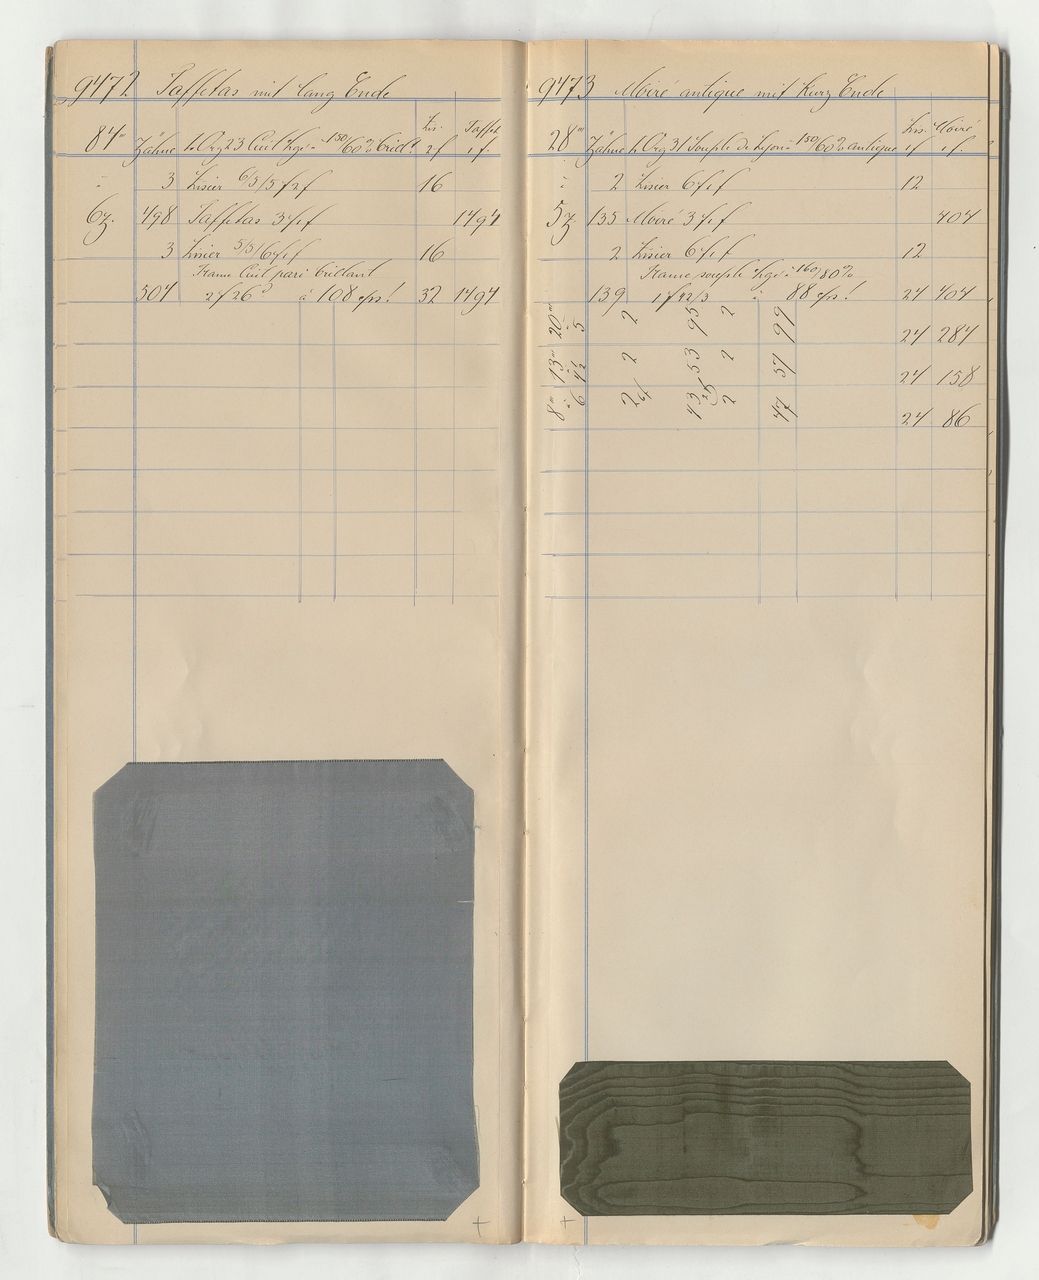 9472 Taffetas mit lang Ende
Lis. Taffet
84''' Zähne 1 Org 23 Cuit 150/60% brill. 2f 1f
à 3 Lisier 6/5/5 f 2f 16
6z. 498 Taffetas 3f 1f 1494
3 Lisier 5/5/6 f 1f 16
Trame Cuit pari brillant
504 2f 26 à 108 cps! 32 1494
9473 Moiré antique mit kurz Ende
Lis. Moiré
28''' Zähne 1 Org 31 Souple de Lyon à 150/60% antique 1f 1f
à 2 Lisier 6f 1f 12
5z 135 Moiré 3f 1f 404
2 Lisier 6f 1f 12
Trame souple à 160/80%
139 1f 42/3 à 88 cps! 24 404
20''' à 5 2 95 2 99 24 284
13''' à 4½ 2 53 2 57 24 158
8''' à 6 2 43 2 47 24 86